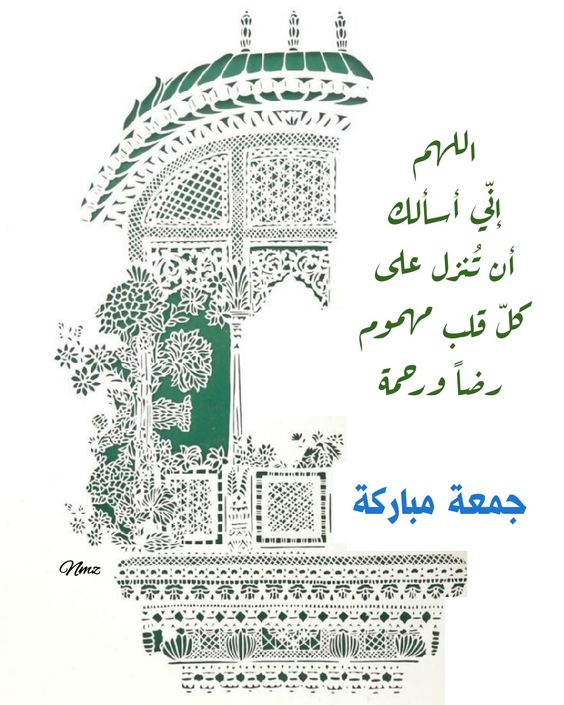 اللهم
إنّي أسألك
أن تُنزل على
كلّ قلب مهموم
رضاً ورحمة
جمعة مباركة
Nmz